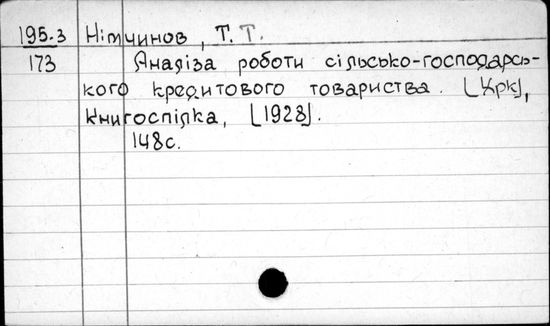 195.3 Німчинов, Т. Т.
173 Аналіза роботи сільсько-господарсь-
кого кредитового товариства. [Хрк],
Книгоспілка, [1928].
148с.